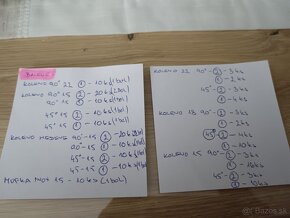 BALENÉ
KOLENO 90° 22 ① - 10 ks (1 bal)
KOLENO 90° 15 ② - 20 ks (2 bal)
90° 15 ① - 10 ks (1 bal)
45° 15 ② - 10 ks (1 bal)
45° 15 ① - 10 ks (1 bal)
KOLENO 90°-15 ② - 20 ks (2 bal)
90°-15 ① - 10 ks (1 bal)
45°-15 ② - 10 ks (1 bal)
45-15 ① - 10 ks (1 bal)
15 - 10 ks (1 bal)
KOLENO 22 90° - ② - 3 ks
① - 2 ks
45° - ② - 4 ks
① - 4 ks
KOLENO 18 90° - ② - 3 ks
① - 2 ks
45° - ② - 4 ks
① - 6 ks
KOLENO 15 90° - ② - 3 ks
① - 10 ks
45° - ② - 3 ks
① - 10 ks